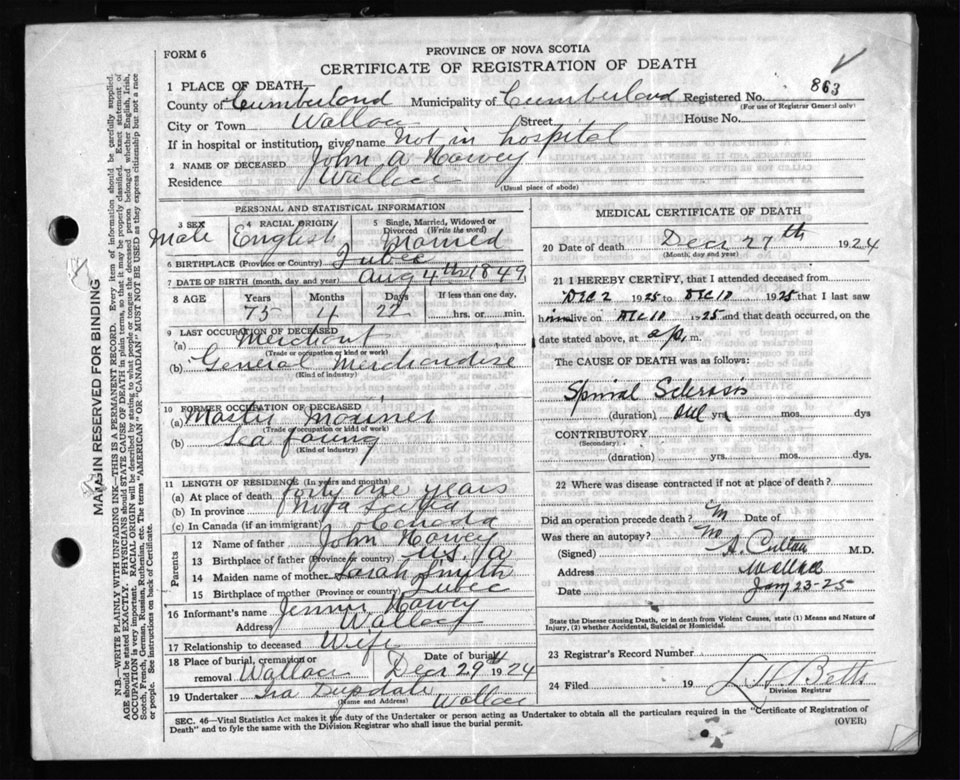 FORM 6
PROVINCE OF NOVA SCOTIA
CERTIFICATE OF REGISTRATION OF DEATH
863
1 PLACE OF DEATH
County of Cumberland Municipality of Cumberland Registered No.
(For use of Registrar General only)
City or Town Wallace Street House No.
If in hospital or institution, give name Not in hospital
2 NAME OF DECEASED John A
Residence Wallace
(Usual place of abode)
PERSONAL AND STATISTICAL INFORMATION
3 SEX Male
4 RACIAL ORIGIN English
5 Single, Married, Widowed or Divorced (Write the word) Married
6 BIRTHPLACE (Province or Country) Lubec
7 DATE OF BIRTH (month, day and year) Aug 4th 1849
8 AGE Years Months Days If less than one day,
75 4 22 hrs. or min.
9 LAST OCCUPATION OF DECEASED
(a) Merchant
(Trade or occupation or kind or work)
(b) General Merchandise
(Kind of industry)
10 FORMER OCCUPATION OF DECEASED
(a) Master Mariner
(Trade or occupation or kind of work)
(b) Sea faring
(Kind of industry)
11 LENGTH OF RESIDENCE (In years and months)
(a) At place of death forty one years
(b) In province Nova Scotia
(c) In Canada (if an immigrant) Canada
Parents
12 Name of father John
13 Birthplace of father (Province or country) U.S.A
14 Maiden name of mother Sarah Smith
15 Birthplace of mother (Province or country) Lubec
16 Informant's name Jennie
Address Wallace
17 Relationship to deceased Wife
18 Place of burial, cremation or removal Wallace Date of burial Decr 29th 1924
19 Undertaker Ira
(Name and Address) Wallace
MEDICAL CERTIFICATE OF DEATH
20 Date of death Decr 27th 1924
(Month, day and year)
21 I HEREBY CERTIFY, that I attended deceased from
DEC 2 1925 to DEC 10 1925 that I last saw
him alive on DEC 10 1925 and that death occurred, on
date stated above, at m.
The CAUSE OF DEATH was as follows:
Spinal Sclerosis
(duration) one yrs. mos. dys
CONTRIBUTORY
(Secondary)
(duration) yrs. mos. dys.
22 Where was disease contracted if not at place of death?
Did an operation precede death? Date of
Was there an autopsy? No
(Signed) M.D.
Address Wallace
Date Jany 23-25
State the Disease causing Death, or in death from Violent Causes, state (1) Means and Nature of
Injury, (2) whether Accidental, Suicidal or Homicidal.
23 Registrar's Record Number
24 Filed 19 Betts
Division Registrar
SEC. 46—Vital Statistics Act makes it the duty of the Undertaker or person acting as Undertaker to obtain all the particulars required in the "Certificate of Registration of
Death" and to fyle the same with the Division Registrar who shall issue the burial permit.
(OVER)
MARGIN RESERVED FOR BINDING
N.B.—WRITE PLAINLY WITH UNFADING INK—THIS IS A PERMANENT RECORD. Every item of information should be carefully supplied.
AGE should be stated EXACTLY. PHYSICIANS should STATE CAUSE OF DEATH in plain terms, so that it may be properly classified. Exact statement of
OCCUPATION is very important. RACIAL ORIGIN will be described by stating to what people or tongue the deceased person belonged whether English, Irish,
Scotch, French, German, Russian, Ruthenian, etc. The terms "AMERICAN" OR "CANADIAN" MUST NOT BE USED as they express citizenship but not a race
or people. See instructions on back of Certificate.